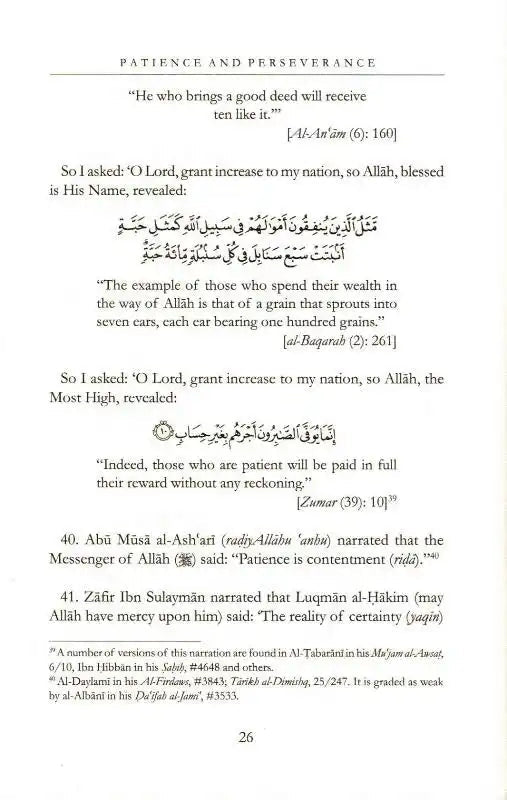 PATIENCE AND PERSEVERANCE
“He who brings a good deed will receive
ten like it.”’
[Al-Anʿām (6): 160]
So I asked: ‘O Lord, grant increase to my nation, so Allāh, blessed
is His Name, revealed:
مَّثَلُ الَّذِينَ يُنفِقُونَ أَمْوَالَهُمْ فِي سَبِيلِ اللَّهِ كَمَثَلِ حَبَّةٍ
أَنبَتَتْ سَبْعَ سَنَابِلَ فِي كُلِّ سُنبُلَةٍ مِّائَةُ حَبَّةٍ
“The example of those who spend their wealth in
the way of Allāh is that of a grain that sprouts into
seven ears, each ear bearing one hundred grains.”
[al-Baqarah (2): 261]
So I asked: ‘O Lord, grant increase to my nation, so Allāh, the
Most High, revealed:
إِنَّمَا يُوَفَّى الصَّابِرُونَ أَجْرَهُم بِغَيْرِ حِسَابٍ ١٠
“Indeed, those who are patient will be paid in full
their reward without any reckoning.”
[Zumar (39): 10]³⁹
40. Abū Mūsā al-Ashʿarī (raḍiyAllāhu ʿanhu) narrated that the
Messenger of Allāh (ﷺ) said: “Patience is contentment (riḍā).”⁴⁰
41. Zāfir Ibn Sulaymān narrated that Luqmān al-Ḥākim (may
Allāh have mercy upon him) said: ‘The reality of certainty (yaqīn)
³⁹ A number of versions of this narration are found in Al-Ṭabarānī in his Muʿjam al-Awsaṭ,
6/10, Ibn Ḥibbān in his Ṣaḥīḥ, #4648 and others.
⁴⁰ Al-Daylamī in his Al-Firdaws, #3843; Tārīkh al-Dimishq, 25/247. It is graded as weak
by al-Albānī in his Ḍaʿīfah al-Jamiʿ, #3533.
26